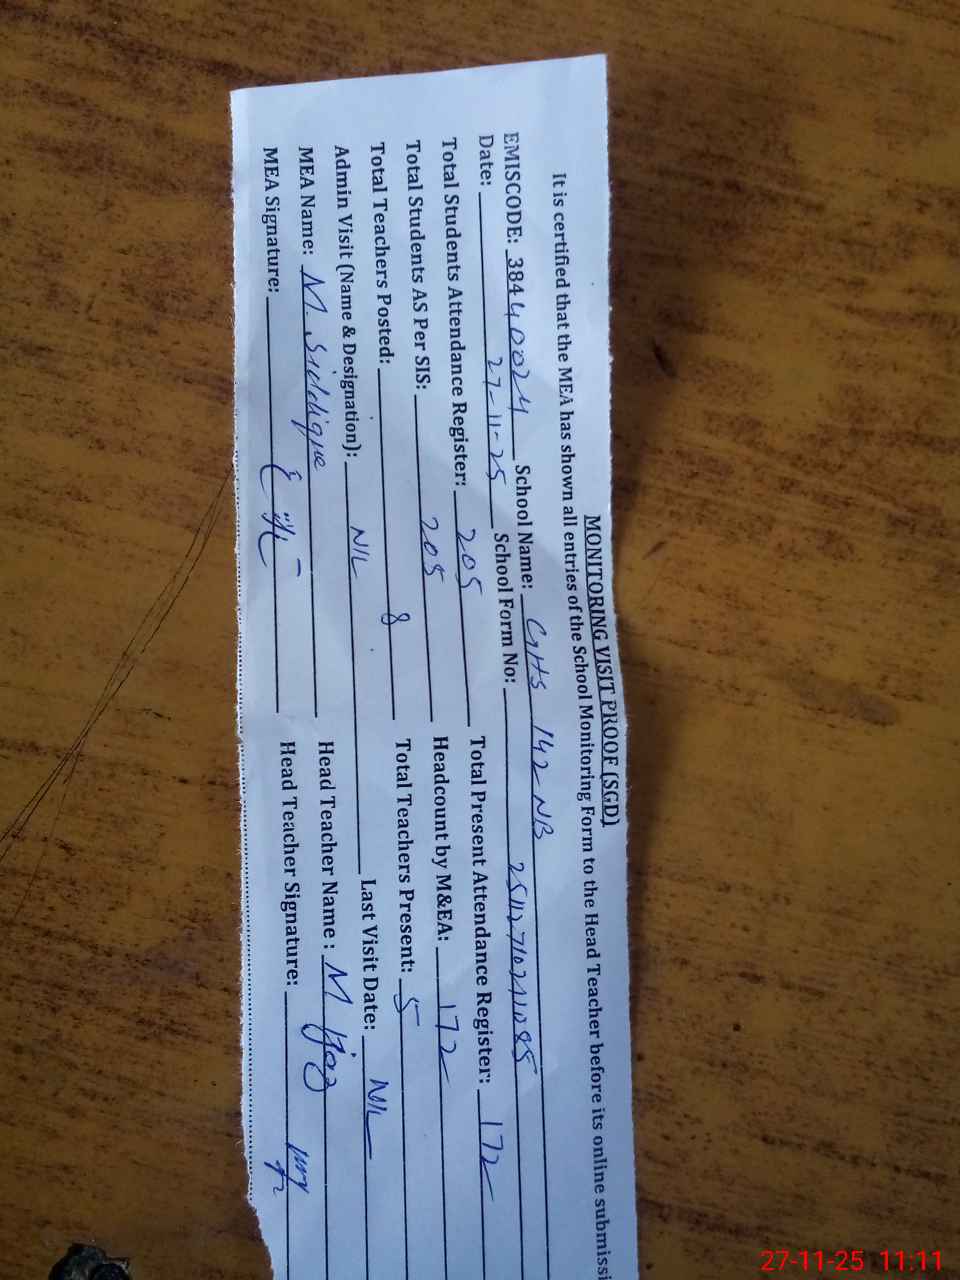 MONITORING VISIT PROOF (SGD)
It is certified that the MEA has shown all entries of the School Monitoring Form to the Head Teacher before its online submissi
EMISCODE: 38440024 School Name: GHS 142-NB
Date: 27-11-25 School Form No:
Total Students Attendance Register: 205 Total Present Attendance Register: 172
Total Students AS Per SIS: 205 Headcount by M&EA: 172
Total Teachers Posted: 8 Total Teachers Present: 5
Admin Visit (Name & Designation): NIL Last Visit Date: NIL
MEA Name: M. Siddique Head Teacher Name : M
MEA Signature: Head Teacher Signature:
27-11-25 11:11